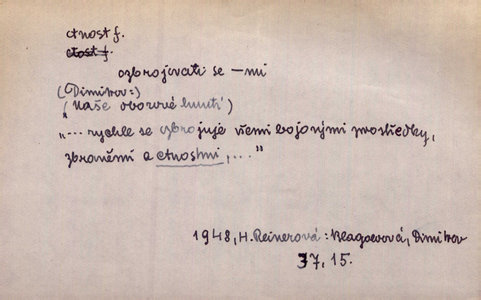 ctnost f.
ctost f.
ozbrojovati se -mi
(Dimitrov:)
(Naše oborové hnutí)
"... rychle se ozbrojuje všemi bojovými prostředky,
zbraněmi a ctnostmi,..."
1948, H. Reinerová: Blagoevová, Dimitrov
37, 15.